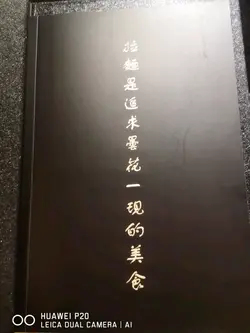 拉麵是追求曇花一現的美食
HUAWEI P20
LEICA DUAL CAMERA | AI